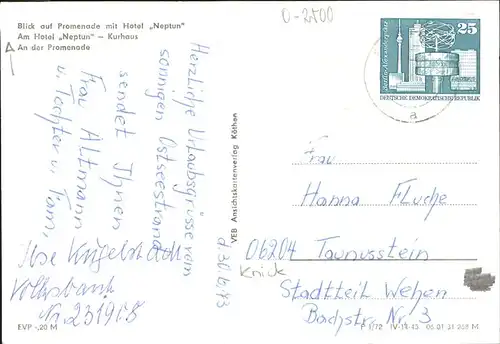 Blick auf Promenade mit Hotel „Neptun"
Am Hotel „Neptun" – Kurhaus
An der Promenade
0-2500
Berlin, Alexanderplatz
25
DEUTSCHE DEMOKRATISCHE REPUBLIK
a
Herzliche Urlaubsgrüsse vom
sonnigen Ostseestrand
sendet Ihnen
Frau Altmann
u. Tochter u. Fam.
d. 30.6.83
Ilse
Volksbank
Nr. 231918
VEB Ansichtskartenverlag Köthen
Frau
Hanna Fluche
06204 Taunusstein
Knick
Stadtteil Wehen
Bachstr. Nr. 3
EVP -,20 M
P 1/72 IV-14-45 06 01 31 268 M